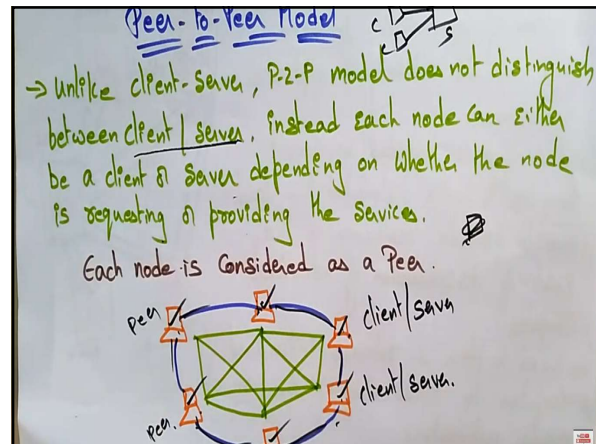 Peer-to-Peer Model
C
C
S
→ Unlike client-Server, P-2-P model does not distinguish
between client/server. instead Each node can Either
be a client or Server depending on whether the node
is requesting or providing the Services.
Each node is Considered as a Peer.
peer
client/server
client/server.
peer.